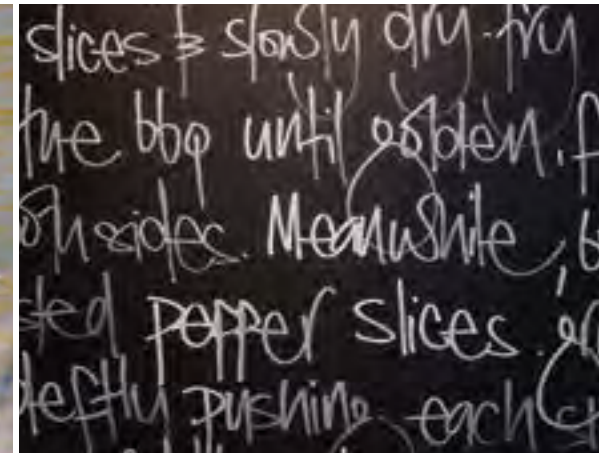 slices & slowly dry-fry
the bbq until golden.
sides. Meanwhile,
pepper slices.
deftly pushing each